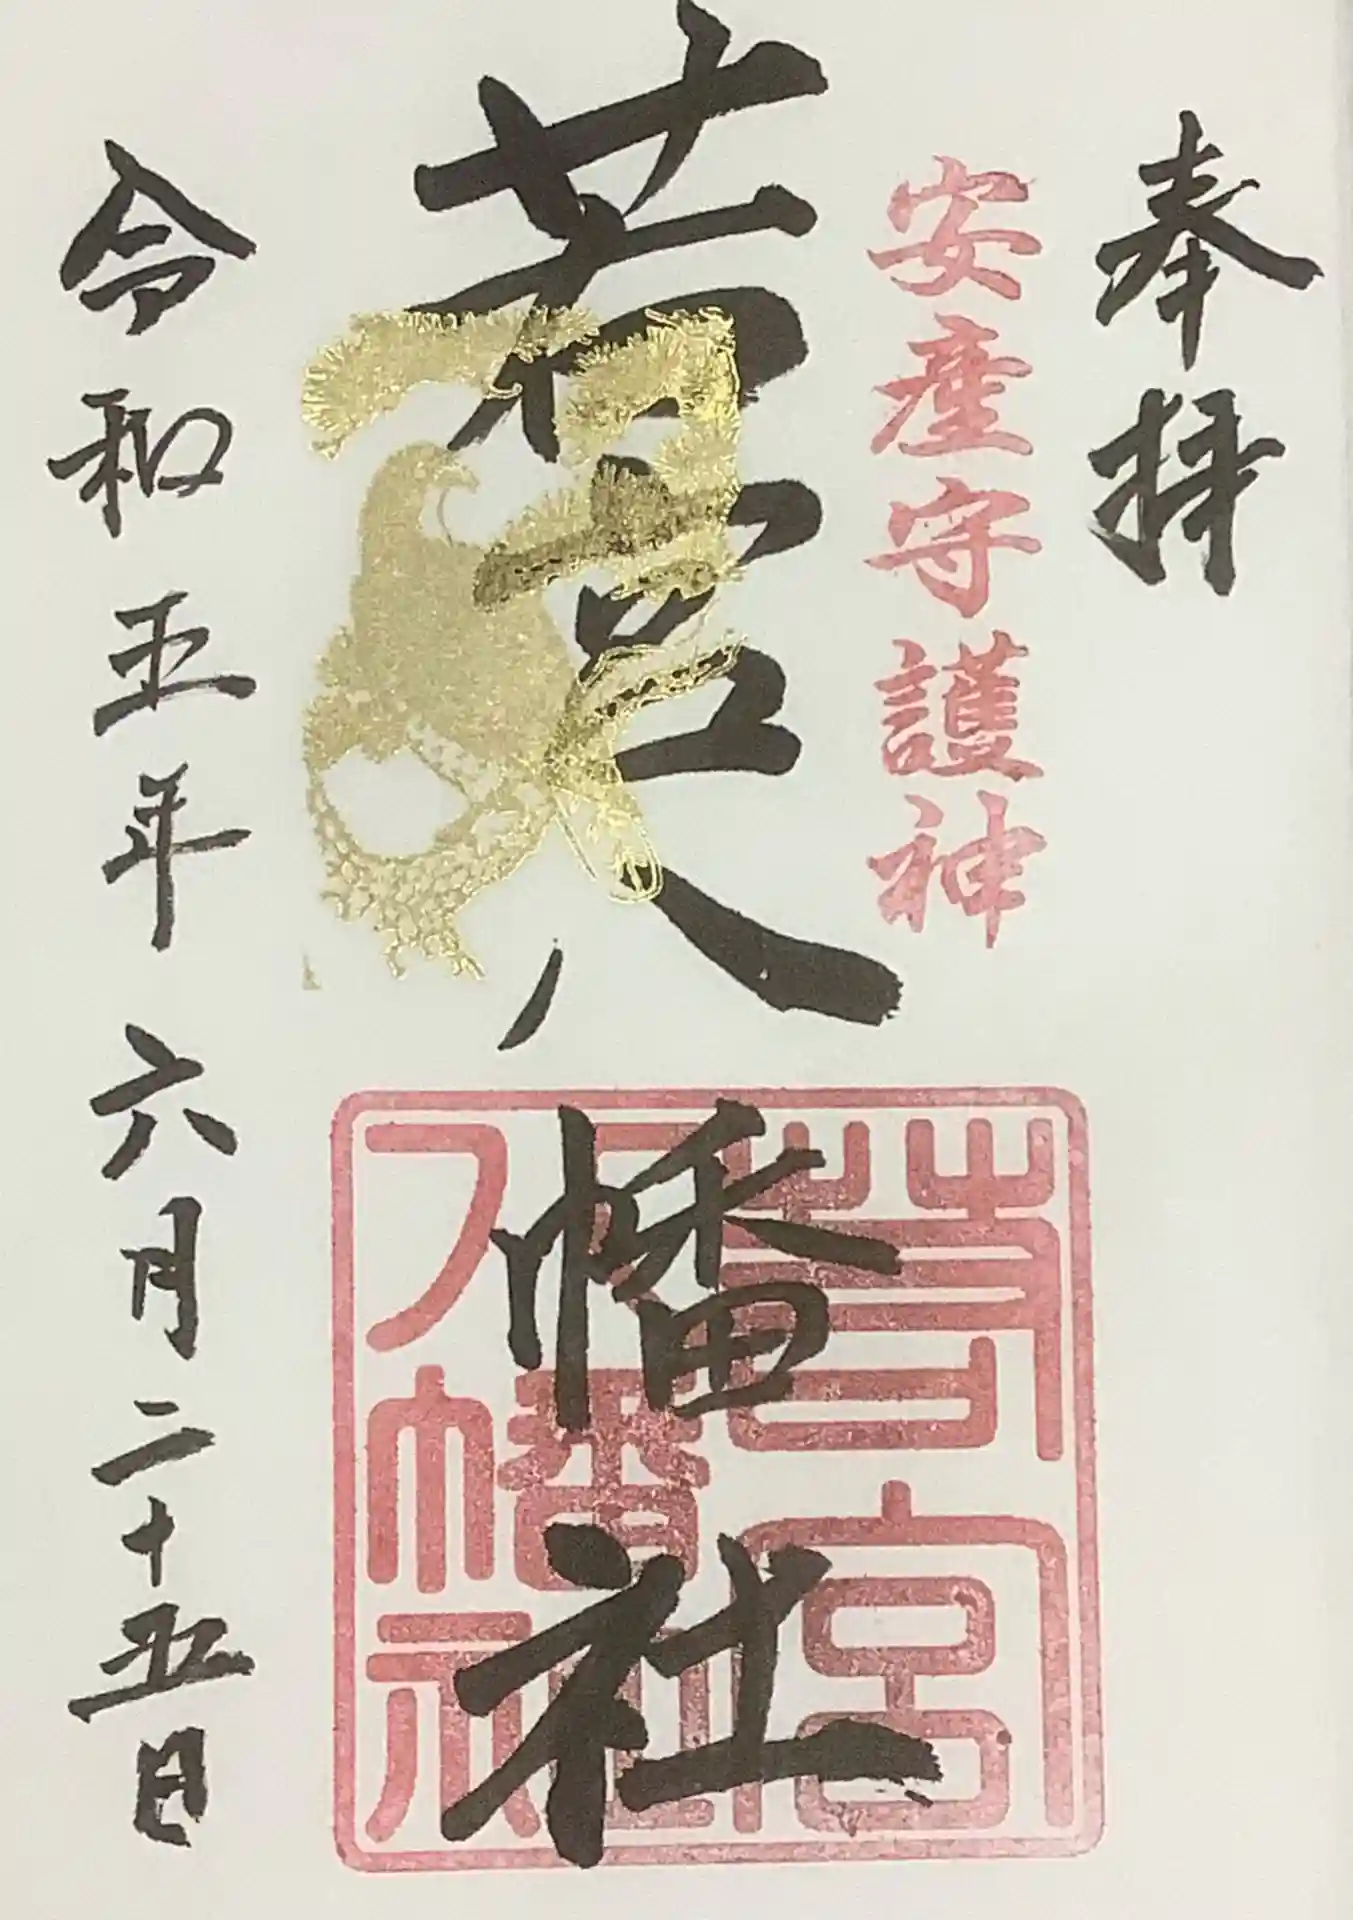 奉拝
安産守護神
若宮八幡社
若宮八幡社
令和五年六月二十五日